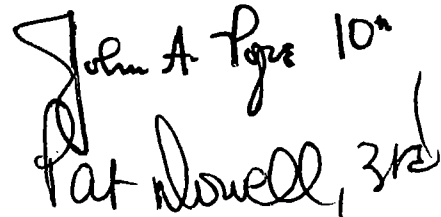 John A. Pope 10th
Pat Dowell, 3rd